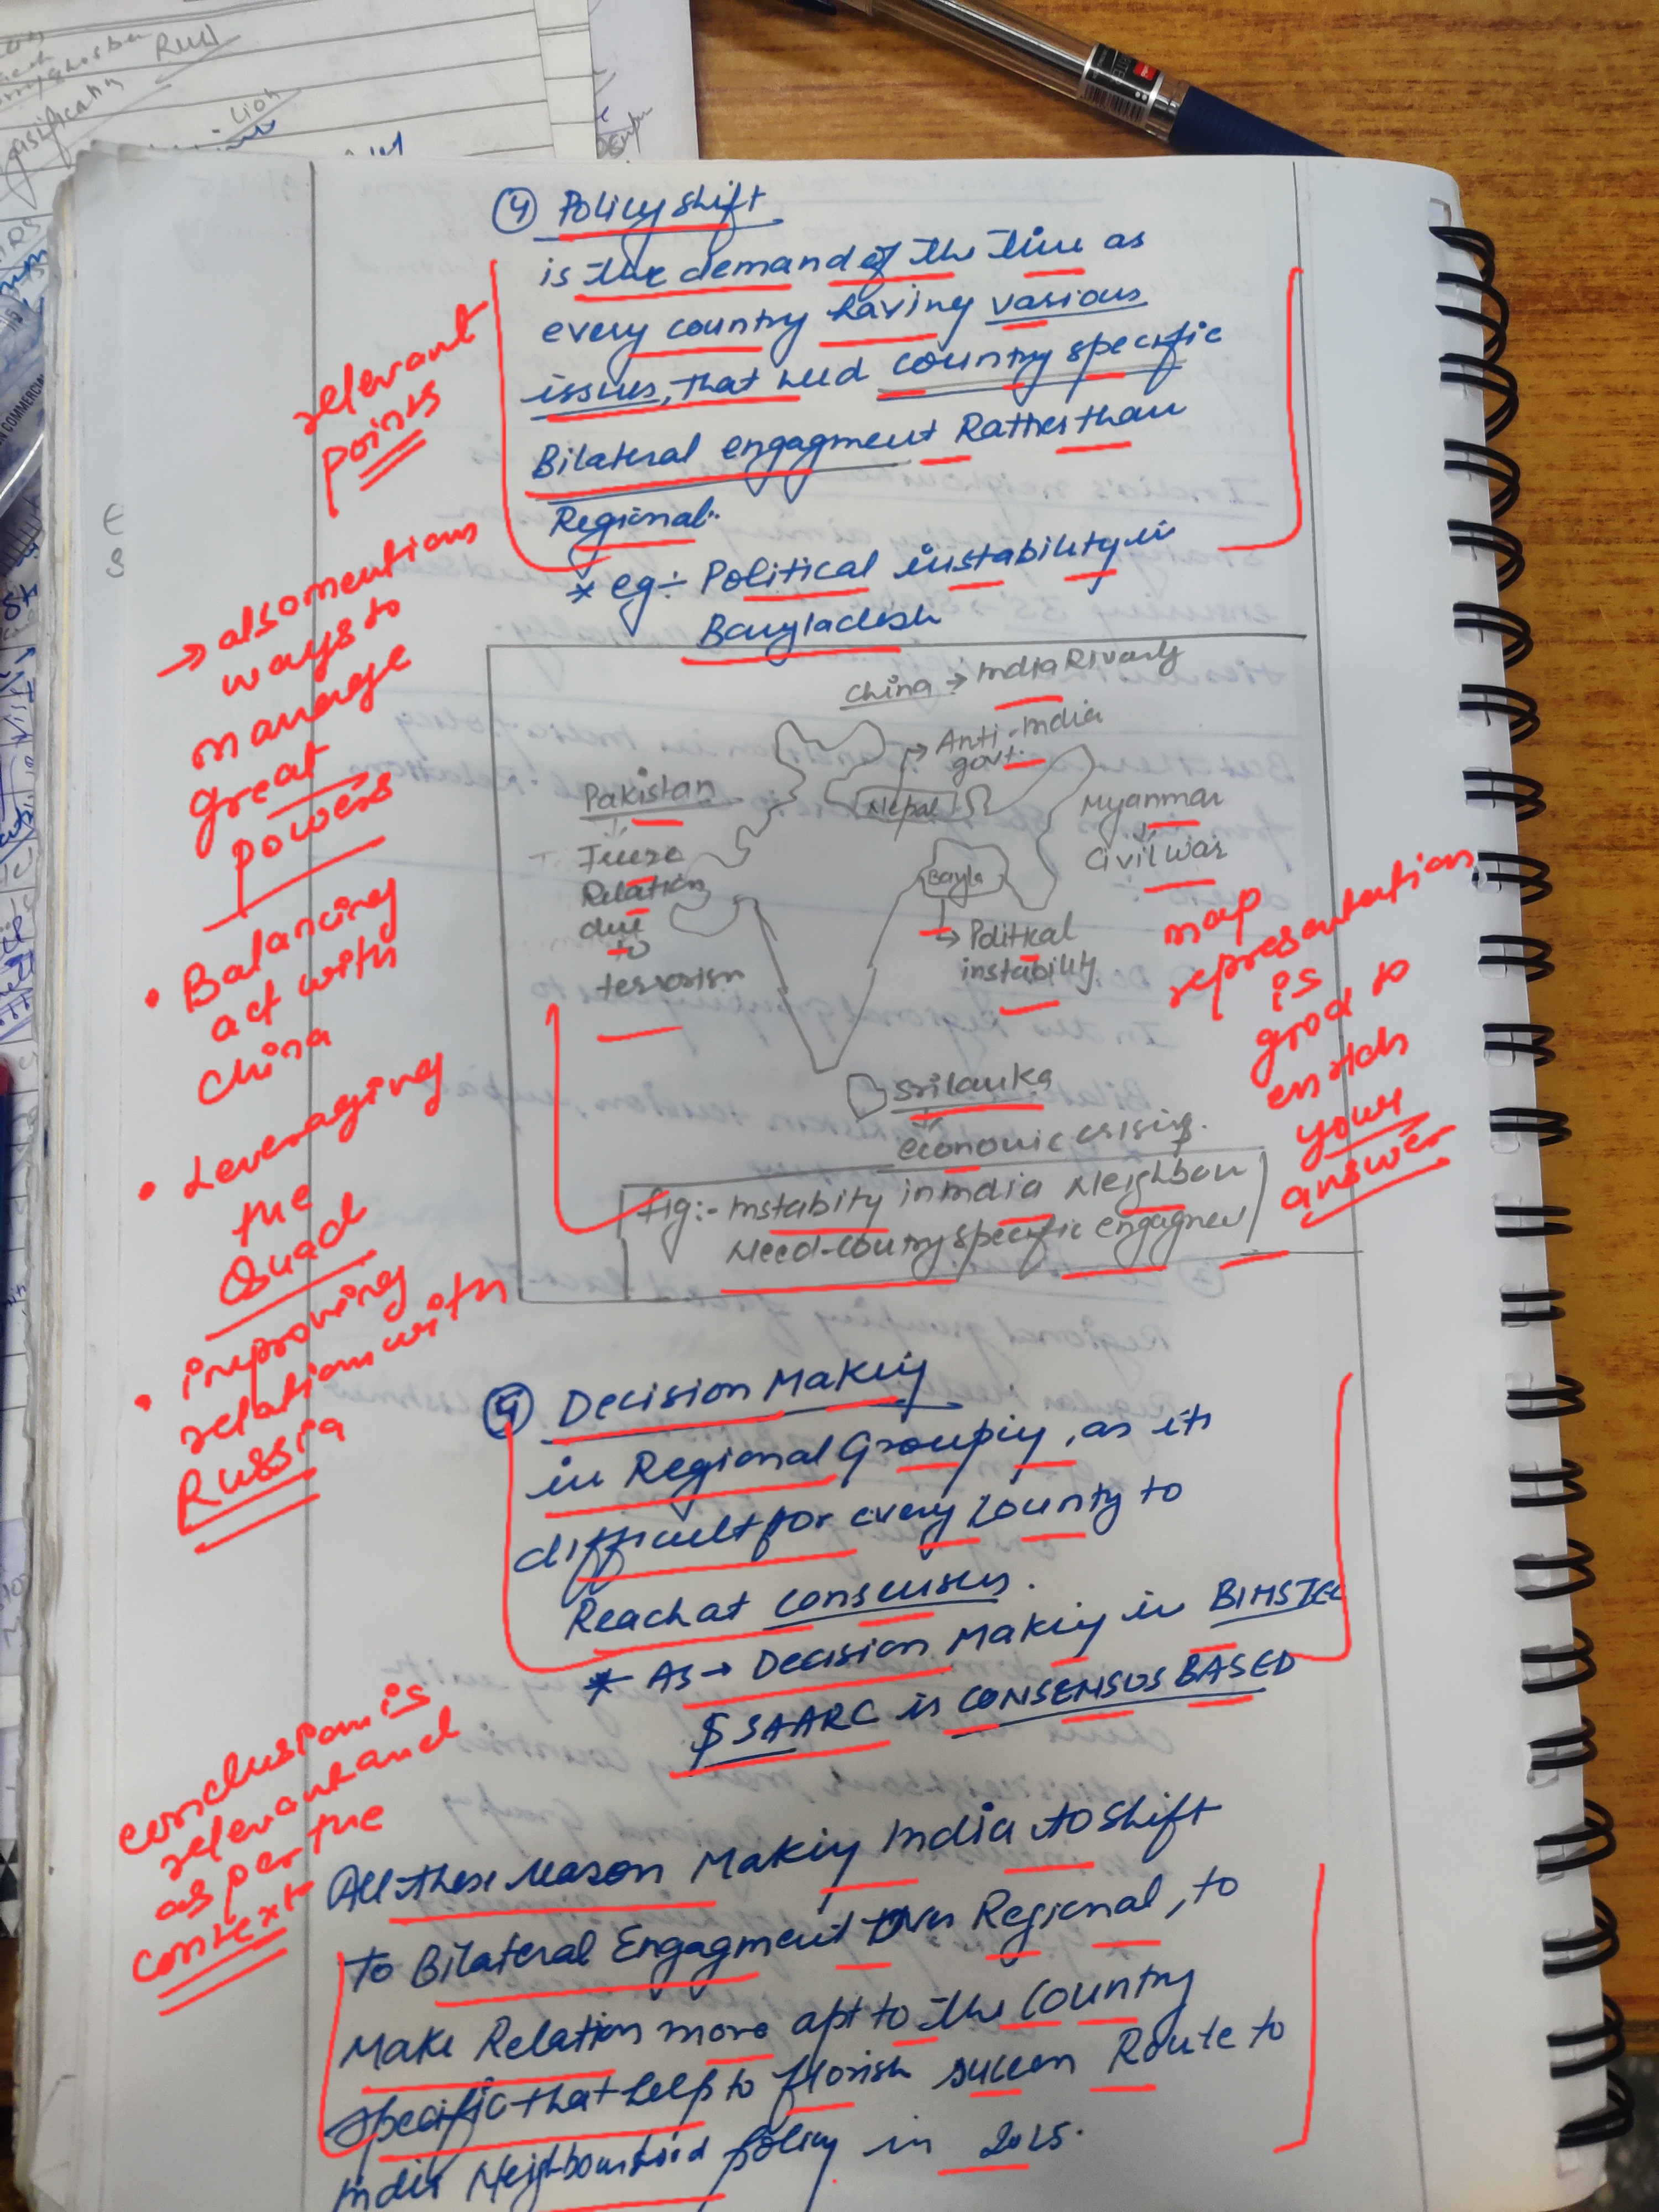 ④ Policy shift
is the demand of the time as
every country having various
issues, that need country specific
Bilateral engagment Rather than
Regional.
* eg:- Political instability in
Bangladesh
relevant
points
→ also mention
ways to
manage
great
powers
• Balancing
act with
China
• Leveraging
the
Quad
• improving
relation with
Russia
China → India Rivarly
→ Anti-India
govt.
Nepal
Pakistan
Freeze
Relation
due
to
terrorism
Myanmar
Civil war
Bangla
→ Political
instability
Srilanka
economic crisis.
fig:- Instabity in India Neighbour
Need-country specific
map
representation
is
good to
enrich
your
answer
Decision Making
in Regional Grouping, as its
difficult for every County to
Reach at consensus.
* As → Decision Making in BIMSTEC
$ SAARC is CONSENSUS BASED
conclusion is
relevant and
as per the
context
All these reason Making India to shift
To Bilateral Engagment over Regional, to
Make Relation more apt to the Country
specific that help to florish Route to
India Neighbourhood policy in 2025.
E
S